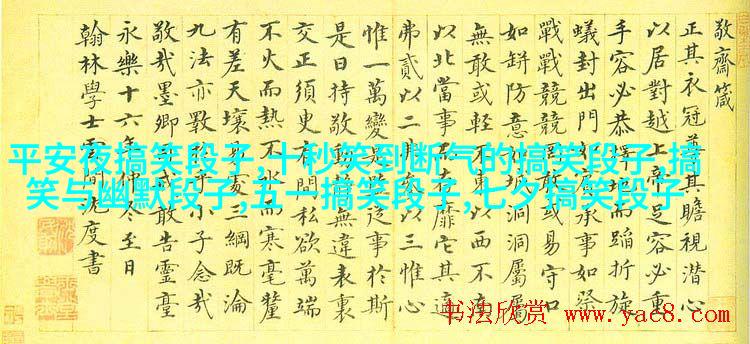 敬齋箴
正其衣冠尊其瞻視潛心
以居對越上帝足容必重
手容必恭擇地而蹈折旋
蟻封出門如賓承事如祭
戰戰兢兢罔敢或易守口
如缾防意如城洞洞屬屬
無敢或輕不東以西不南
以北當事而存靡它其適
弗貳以二以三惟心
惟一萬變是從事於斯
是日持敬無違表裏
交正須臾有間私欲萬端
不火而熱不冰而寒毫釐
有差天壤易處三綱既淪
九法亦斁乎小子念哉
敬哉墨卿戒敢告靈臺
永樂十六年仲冬至日
翰林學士雲間沈度書
平安夜搞笑段子,十秒笑到断气的搞笑段子,搞
笑与幽默段子,五一搞笑段子,七夕搞笑段子
书法欣赏
www.yac8.com